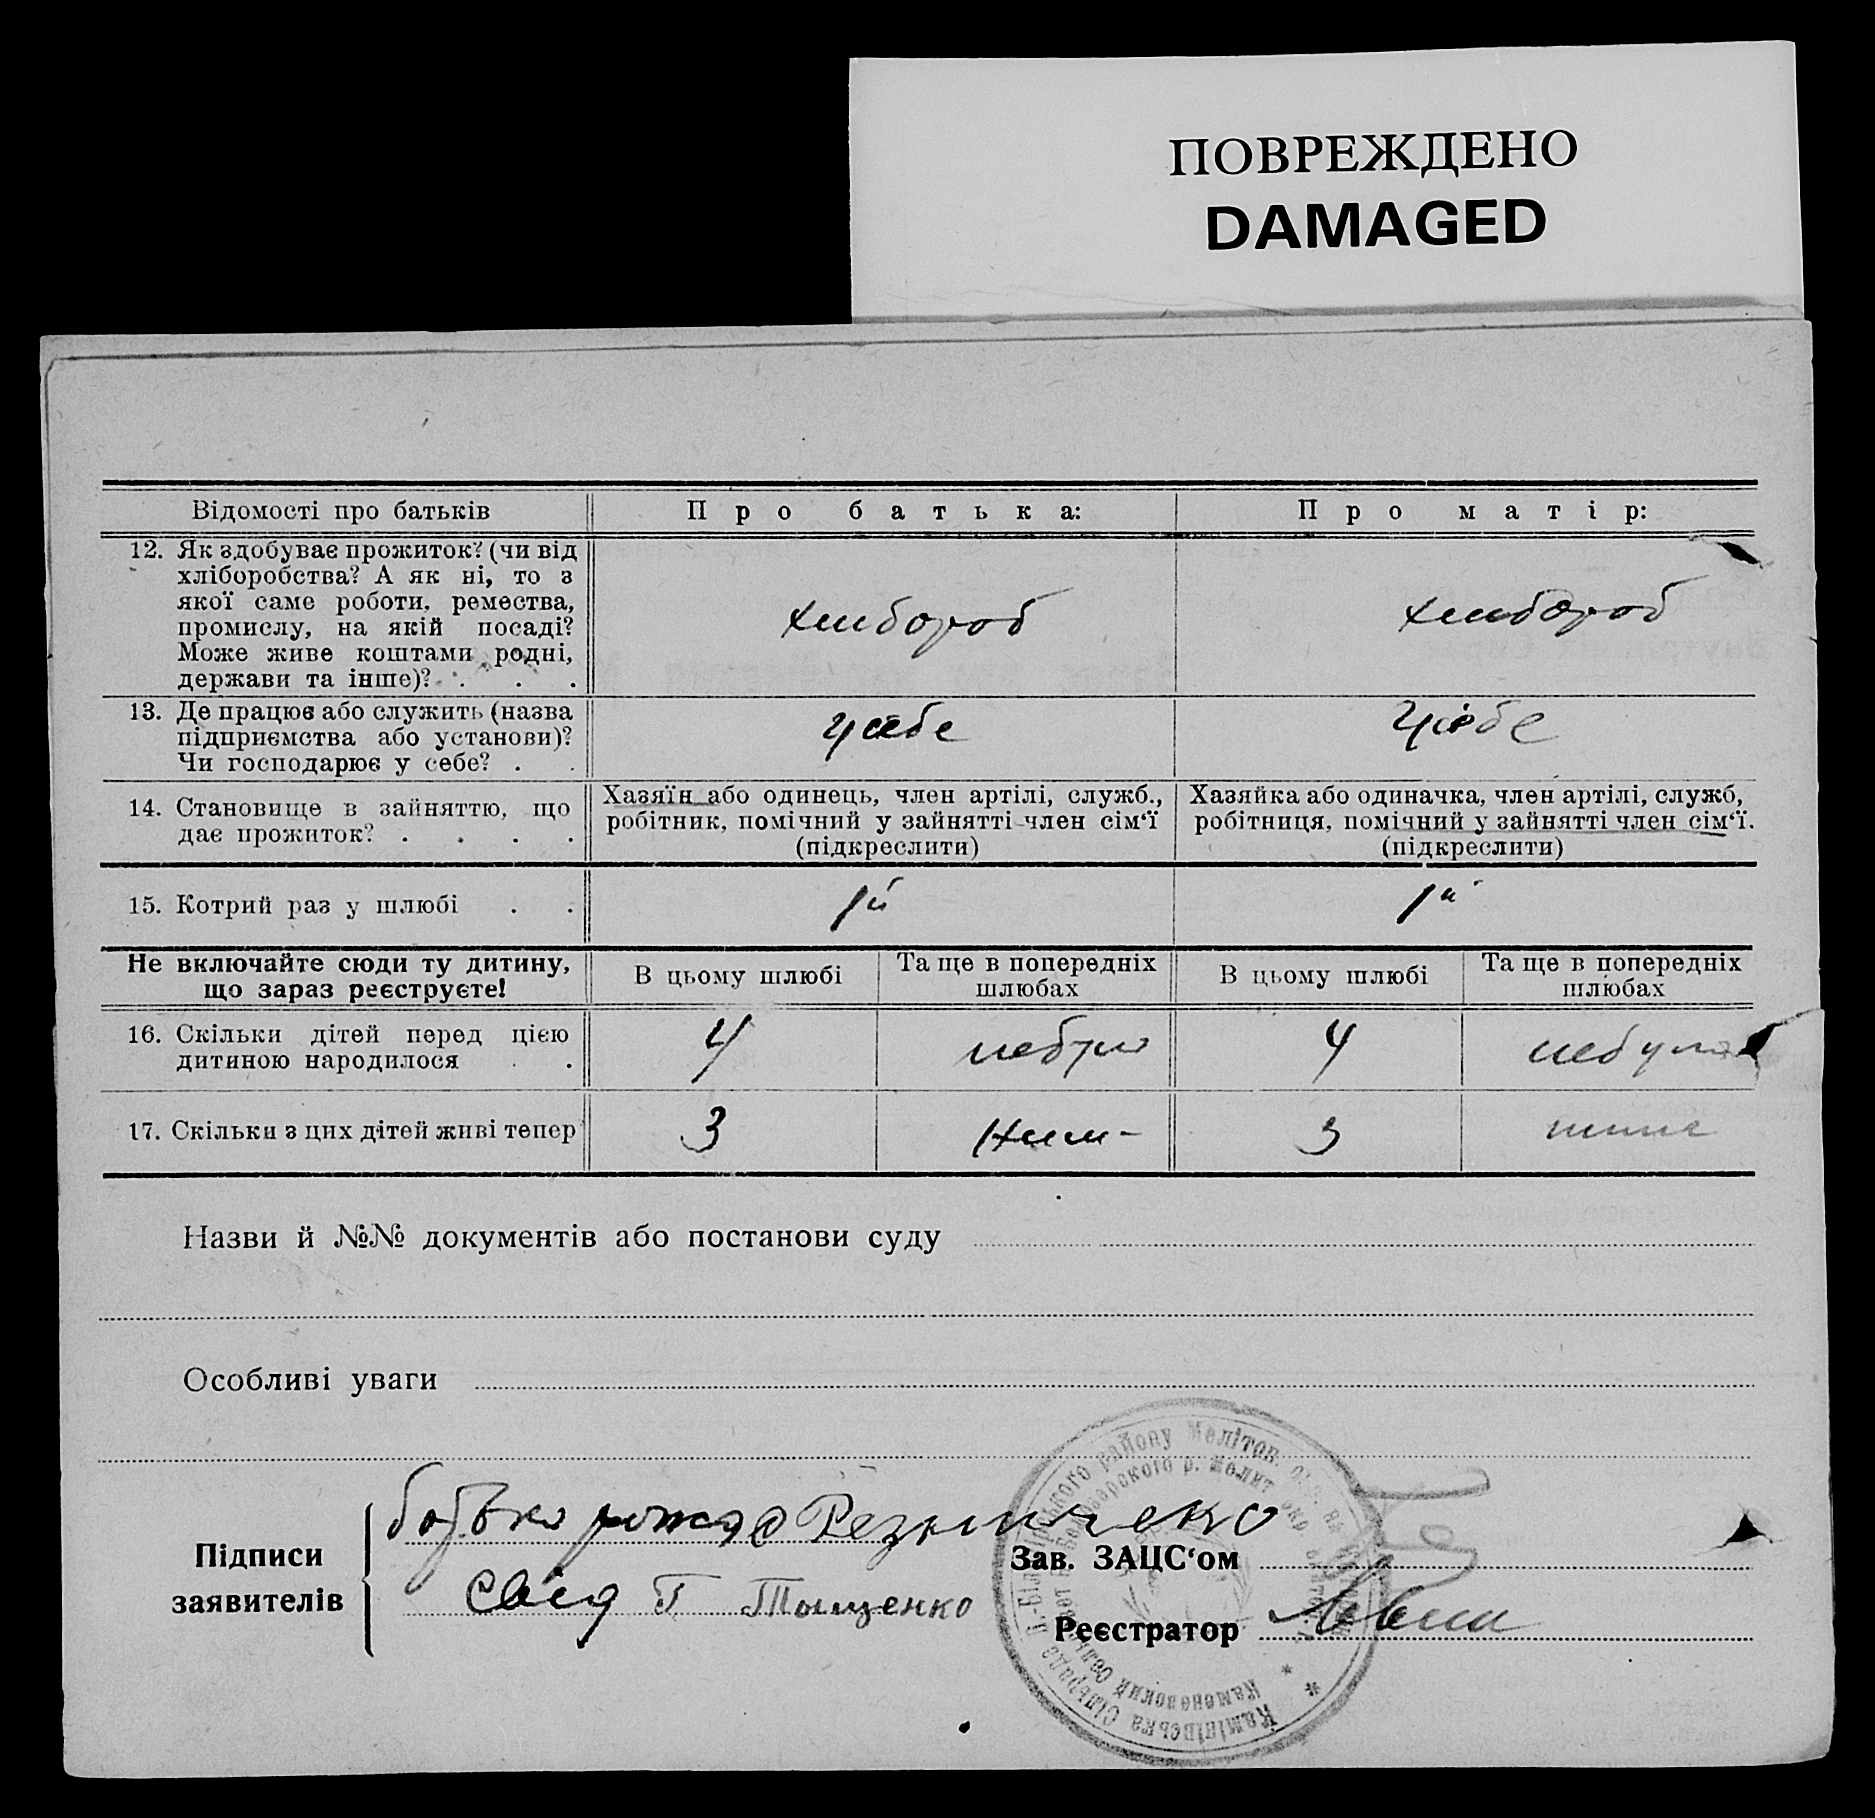 ПОВРЕЖДЕНО
DAMAGED
Відомості про батьків
Про батька:
Про матір:
12. Як здобуває прожиток? (чи від
хліборобства? А як ні, то з
якої саме роботи, ремества,
промислу, на якій посаді?
Може живе коштами родні,
держави та інше)? . . .
хлибороб
хлибороб
13. Де працює або служить (назва
підприємства або установи)?
Чи господарює у себе? . .
у себе
у себе
14. Становище в зайняттю, що
дає прожиток? . . . .
Хазяїн або одинець, член артілі, служб.,
робітник, помічний у зайнятті член сім‘ї
(підкреслити)
Хазяйка або одиначка, член артілі, служб,
робітниця, помічний у зайнятті член сім‘ї.
(підкреслити)
15. Котрий раз у шлюбі . .
1й
1й
Не включайте сюди ту дитину,
що зараз реєструєте!
В цьому шлюбі
Та ще в попередніх
шлюбах
В цьому шлюбі
Та ще в попередніх
шлюбах
16. Скільки дітей перед цією
дитиною народилося . .
4
небуло
4
небуло
17. Скільки з цих дітей живі тепер
3
3
Назви й №№ документів або постанови суду
Особливі уваги
Підписи
заявителів
батько Резниченко
Свід Г Тыщенко
Зав. ЗАЦС‘ом
Реєстратор
Камінівська Сільрада району Мелітоп.
Каменский